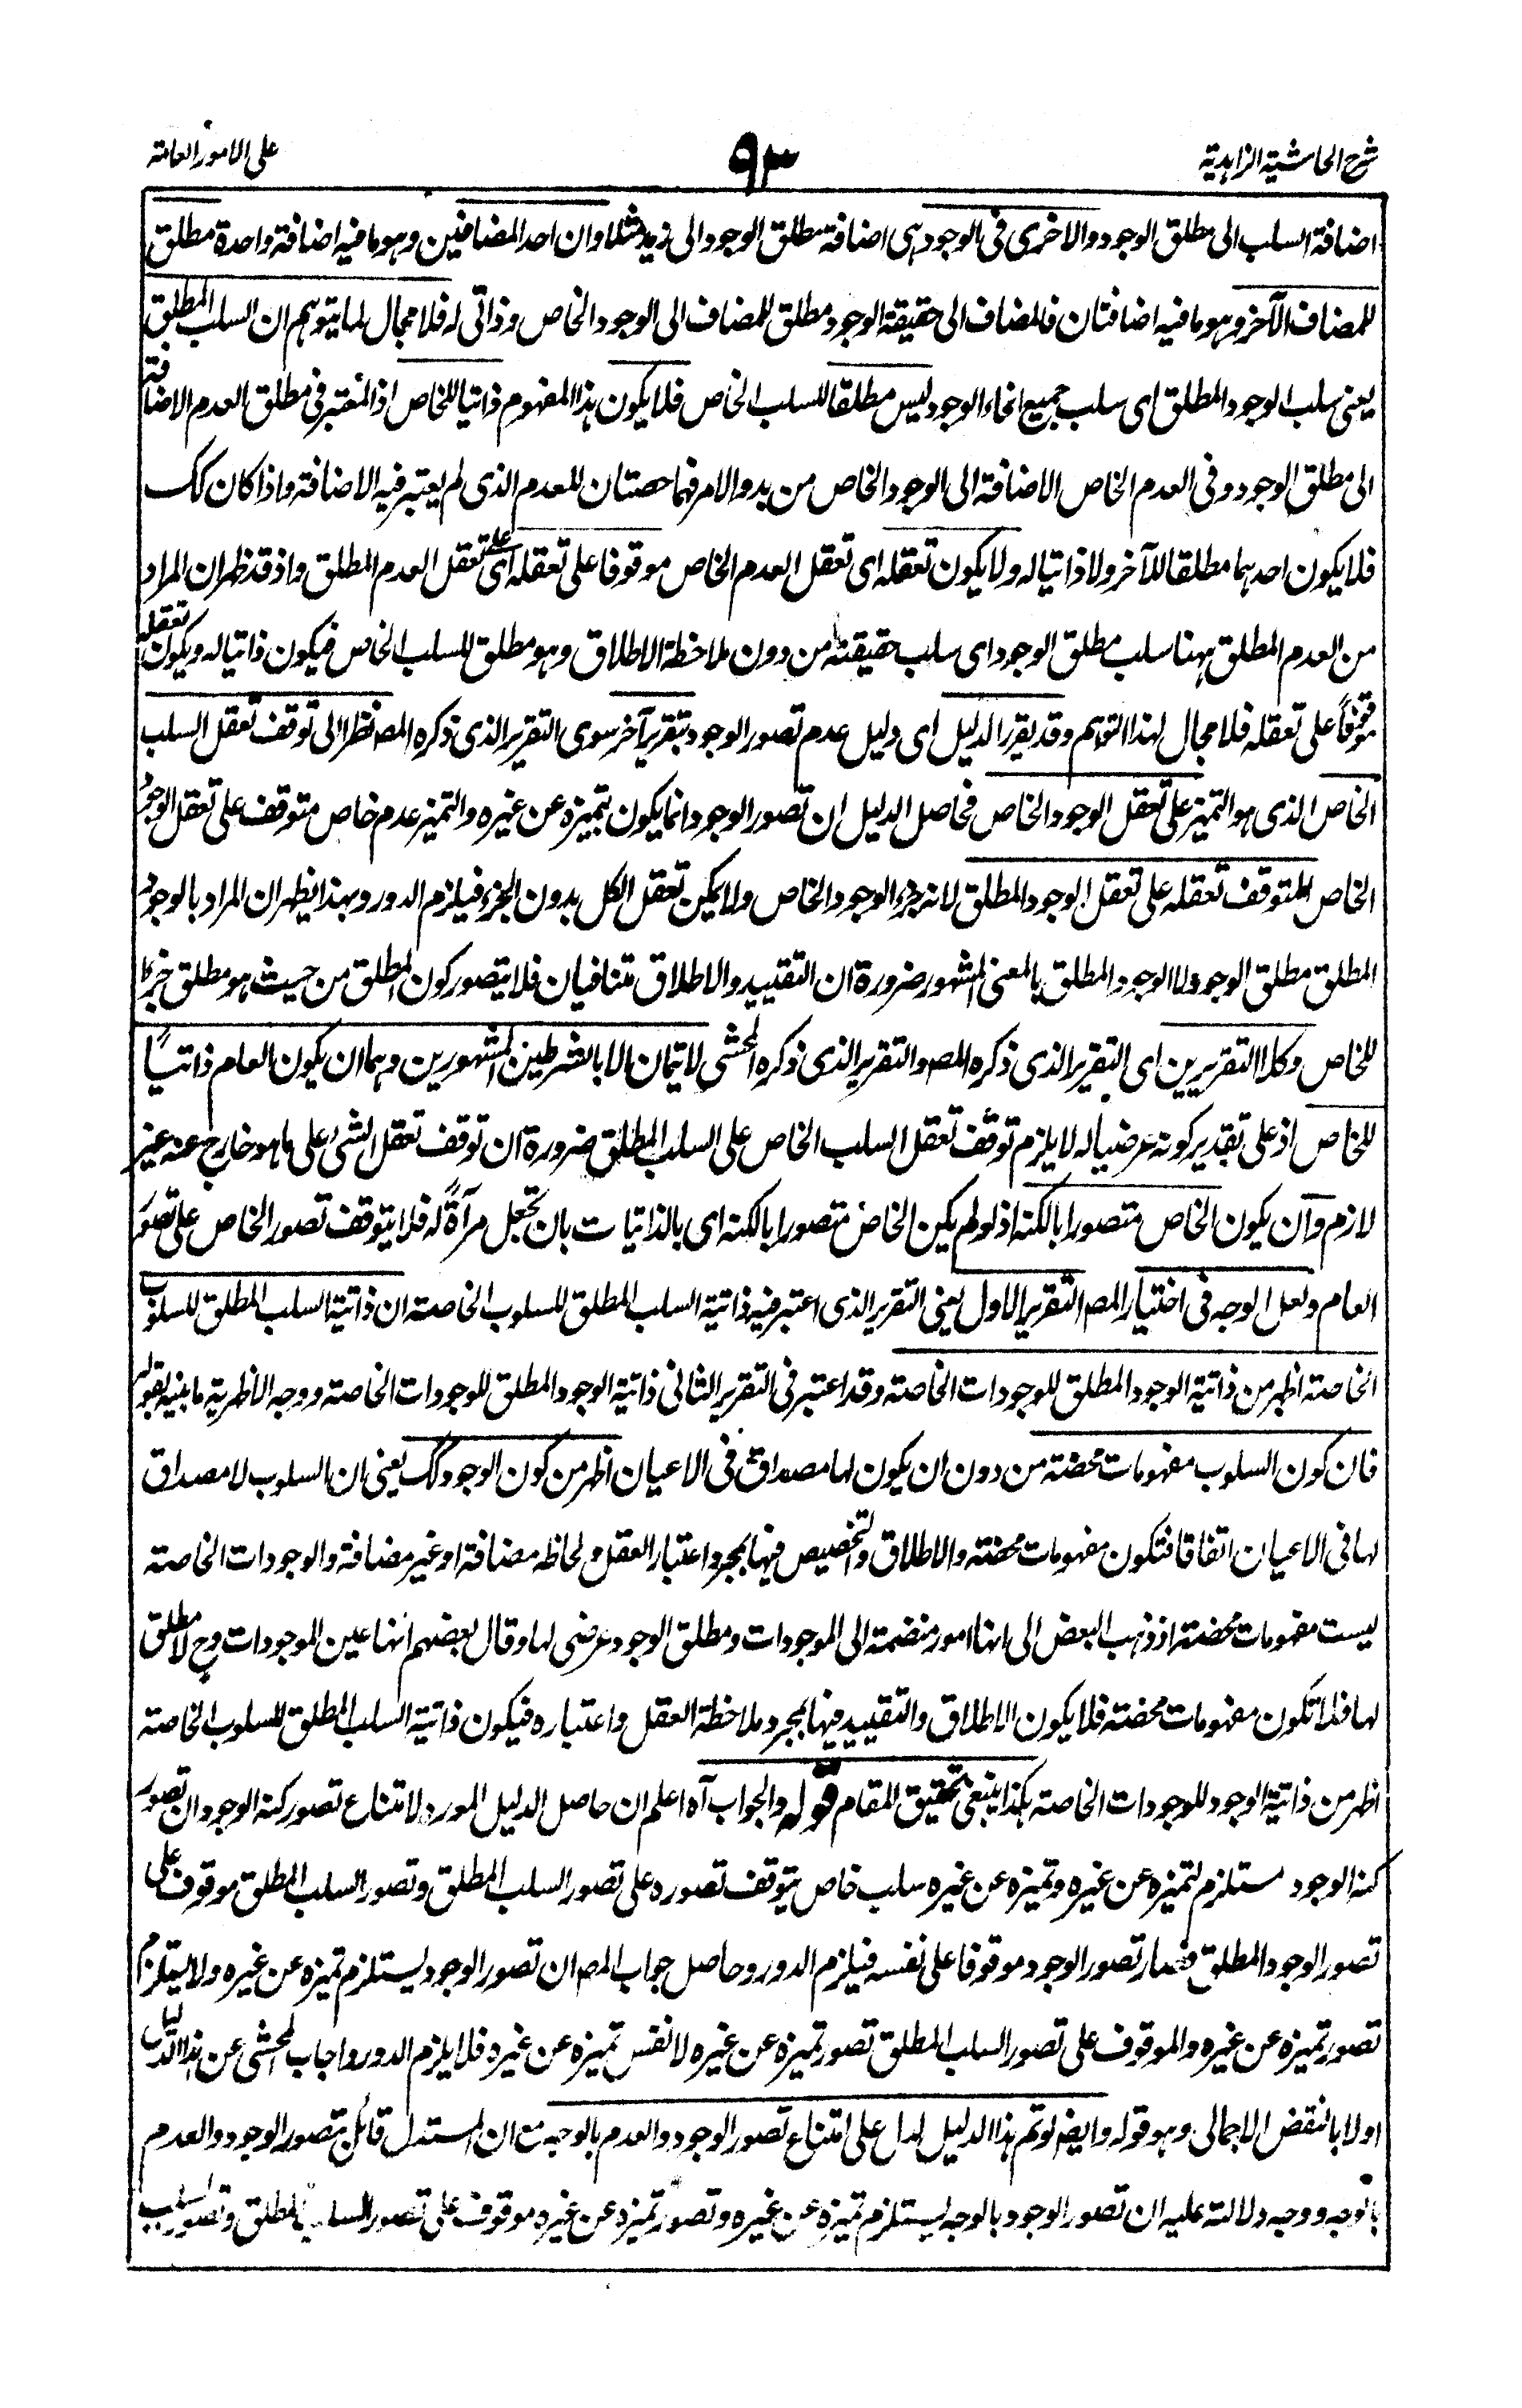 شرح الحاشية الزاهدية
٩٣
على الامور العامة
اضافة السلب الى مطلق الوجود والاخرى فى الوجود هى اضافة مطلق الوجود الى زيد مثلا وان احد المضافين وهو ما فيه اضافة واحدة مطلق
للمضاف الآخر وهو ما فيه اضافتان فالمضاف الى حقيقة الوجود مطلق للمضاف الى الوجود الخاص وذاتى له فلا مجال لما يتوهم ان السلب المطلق
يعنى سلب الوجود المطلق اى سلب جميع انحاء الوجود ليس مطلقا للسلب الخاص فلا يكون هذا المفهوم ذاتيا للخاص اذ المعتبر فى مطلق العدم الاضافة
الى مطلق الوجود وفى العدم الخاص الاضافة الى الوجود الخاص من بدو الامر فهما حصتان للعدم الذى لم يعتبر فيه الاضافة واذا كان كك
فلا يكون احدهما مطلقا للآخر ولا ذاتيا له ولا يكون تعقله اى تعقل العدم الخاص موقوفا على تعقله اى على تعقل العدم المطلق واذ قد ظهر ان المراد
من العدم المطلق ههنا سلب مطلق الوجود اى سلب حقيقته من دون ملاحظة الاطلاق وهو مطلق للسلب الخاص فيكون ذاتيا له ويكون تعقله
متوقفاً على تعقله فلا مجال لهذا التوهم وقد يقرر الدليل اى دليل عدم تصور الوجود بتقرير آخر سوى التقرير الذى ذكره المص نظرا الى توقف تعقل السلب
الخاص الذى هو التميز على تعقل الوجود الخاص فحاصل الدليل ان تصور الوجود انما يكون بتميزه عن غيره والتميز عدم خاص متوقف على تعقل الوجود
الخاص المتوقف تعقله على تعقل الوجود المطلق لانه جزء الوجود الخاص ولا يمكن تعقل الكل بدون الجزء فيلزم الدور وبهذا يظهر ان المراد بالوجود
المطلق مطلق الوجود لا الوجود المطلق بالمعنى المشهور ضرورة ان التقييد والاطلاق متنافيان فلا يتصور كون المطلق من حيث هو مطلق جزءا
للخاص وكلا التقريرين اى التقرير الذى ذكره المص والتقرير الذى ذكره المحشى لا يتمان الا بالشرطين المشهورين وهما ان يكون العام ذاتيًا
للخاص اذ على تقدير كونه عرضيا له لا يلزم توقف تعقل السلب الخاص على السلب المطلق ضرورة ان توقف تعقل الشئ على ما هو خارج عنه غير
لازم وان يكون الخاص متصورا بالكنه اذ لو لم يكن الخاص متصورا بالكنه اى بالذاتيات بان تجعل مرآةً له فلا يتوقف تصور الخاص على تصور
العام ولعل الوجه فى اختيار المص التقرير الاول يعنى التقرير الذى اعتبر فيه ذاتية السلب المطلق للسلوب الخاصة ان ذاتية السلب المطلق للسلوب
الخاصة اظهر من ذاتية الوجود المطلق للوجودات الخاصة وقد اعتبر فى التقرير الثانى ذاتية الوجود المطلق للوجودات الخاصة ووجه الاظهرية ما بينه بقوله
فان كون السلوب مفهومات محضة من دون ان يكون لها مصداق فى الاعيان اظهر من كون الوجود كك يعنى ان السلوب لا مصداق
لها فى الاعيان اتفاقا فتكون مفهومات محضة والاطلاق والتخصيص فيها بمجرد اعتبار العقل ولحاظه مضافة او غير مضافة والوجودات الخاصة
ليست مفهومات محضة اذ ذهب البعض الى انها امور منضمة الى الموجودات ومطلق الوجود عرضى لها وقال بعضهم انها عين الموجودات وح لا مطلق
لها فلا تكون مفهومات محضة فلا يكون الاطلاق والتقييد فيها بمجرد ملاحظة العقل واعتباره فيكون ذاتية السلب المطلق للسلوب الخاصة
اظهر من ذاتية الوجود للوجودات الخاصة هكذا ينبغى تحقيق المقام قوله والجواب آه اعلم ان حاصل الدليل المورد لامتناع تصور كنه الوجود ان تصور
كنه الوجود مستلزم لتميزه عن غيره وتميزه عن غيره سلب خاص يتوقف تصوره على تصور السلب المطلق وتصور السلب المطلق موقوف على
تصور الوجود المطلق فصار تصور الوجود موقوفا على نفسه فيلزم الدور وحاصل جواب المص ان تصور الوجود يستلزم تميزه عن غيره ولا يستلزم
تصور تميزه عن غيره والموقوف على تصور السلب المطلق تصور تميزه عن غيره لا نفس تميزه عن غيره فلا يلزم الدور واجاب المحشى عن هذا الدليل
اولا بالنقض الاجمالى وهو قوله وايضا لو تم هذا الدليل لدل على امتناع تصور الوجود والعدم بالوجه مع ان المستدل قائل بتصور الوجود والعدم
بالوجه ووجه دلالته عليه ان تصور الوجود بالوجه يستلزم تميزه عن غيره وتصور تميزه عن غيره موقوف على تصور السلب المطلق وتصور السلب